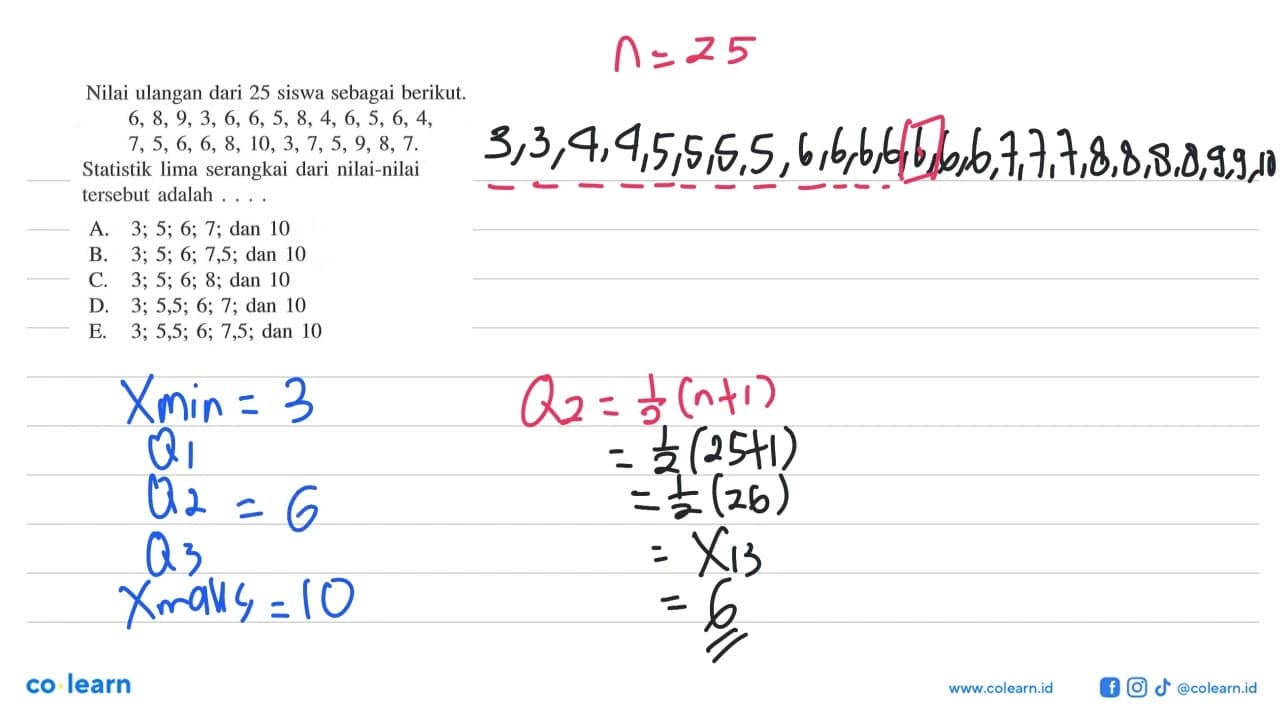 n = 25
Nilai ulangan dari 25 siswa sebagai berikut.
6, 8, 9, 3, 6, 6, 5, 8, 4, 6, 5, 6, 4,
7, 5, 6, 6, 8, 10, 3, 7, 5, 9, 8, 7.
Statistik lima serangkai dari nilai-nilai
tersebut adalah . . . .
A. 3; 5; 6; 7; dan 10
B. 3; 5; 6; 7,5; dan 10
C. 3; 5; 6; 8; dan 10
D. 3; 5,5; 6; 7; dan 10
E. 3; 5,5; 6; 7,5; dan 10
3,3,4,4,5,5,5,5,6,6,6,6,6,6,6,7,7,7,8,8,8,8,9,9,10
Xmin = 3
Q1
Q2 = 6
Q3
Xmaks = 10
Q2 = 1/2 (n+1)
= 1/2 (25+1)
= 1/2 (26)
= X13
= 6
co learn
www.colearn.id
@colearn.id